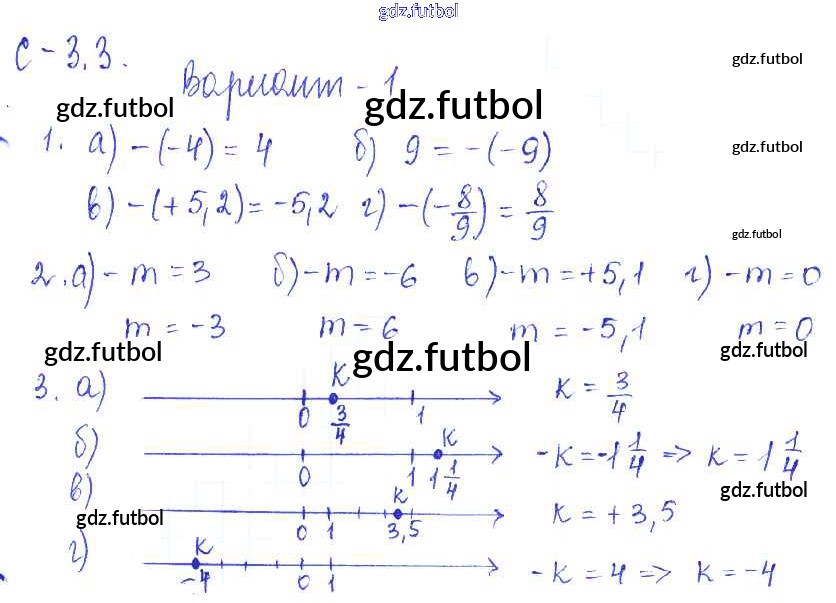 gdz.futbol
С-3.3.
gdz.futbol
Вариант-1
gdz.futbol gdz.futbol
1. а) -(-4) = 4 б) 9 = -(-9)
gdz.futbol
в) -(+5,2) = -5,2 г) -(-8/9) = 8/9
gdz.futbol
2. а) -m = 3 б) -m = -6 в) -m = +5,1 г) -m = 0
m = -3 m = 6 m = -5,1 m = 0
gdz.futbol gdz.futbol gdz.futbol
3. а) K 0 3/4 1 K = 3/4
б) K 0 1 1 1/4 -K = -1 1/4 => K = 1 1/4
gdz.futbol
в) K 0 1 3,5 K = +3,5
gdz.futbol
г) K -4 0 1 -K = 4 => K = -4